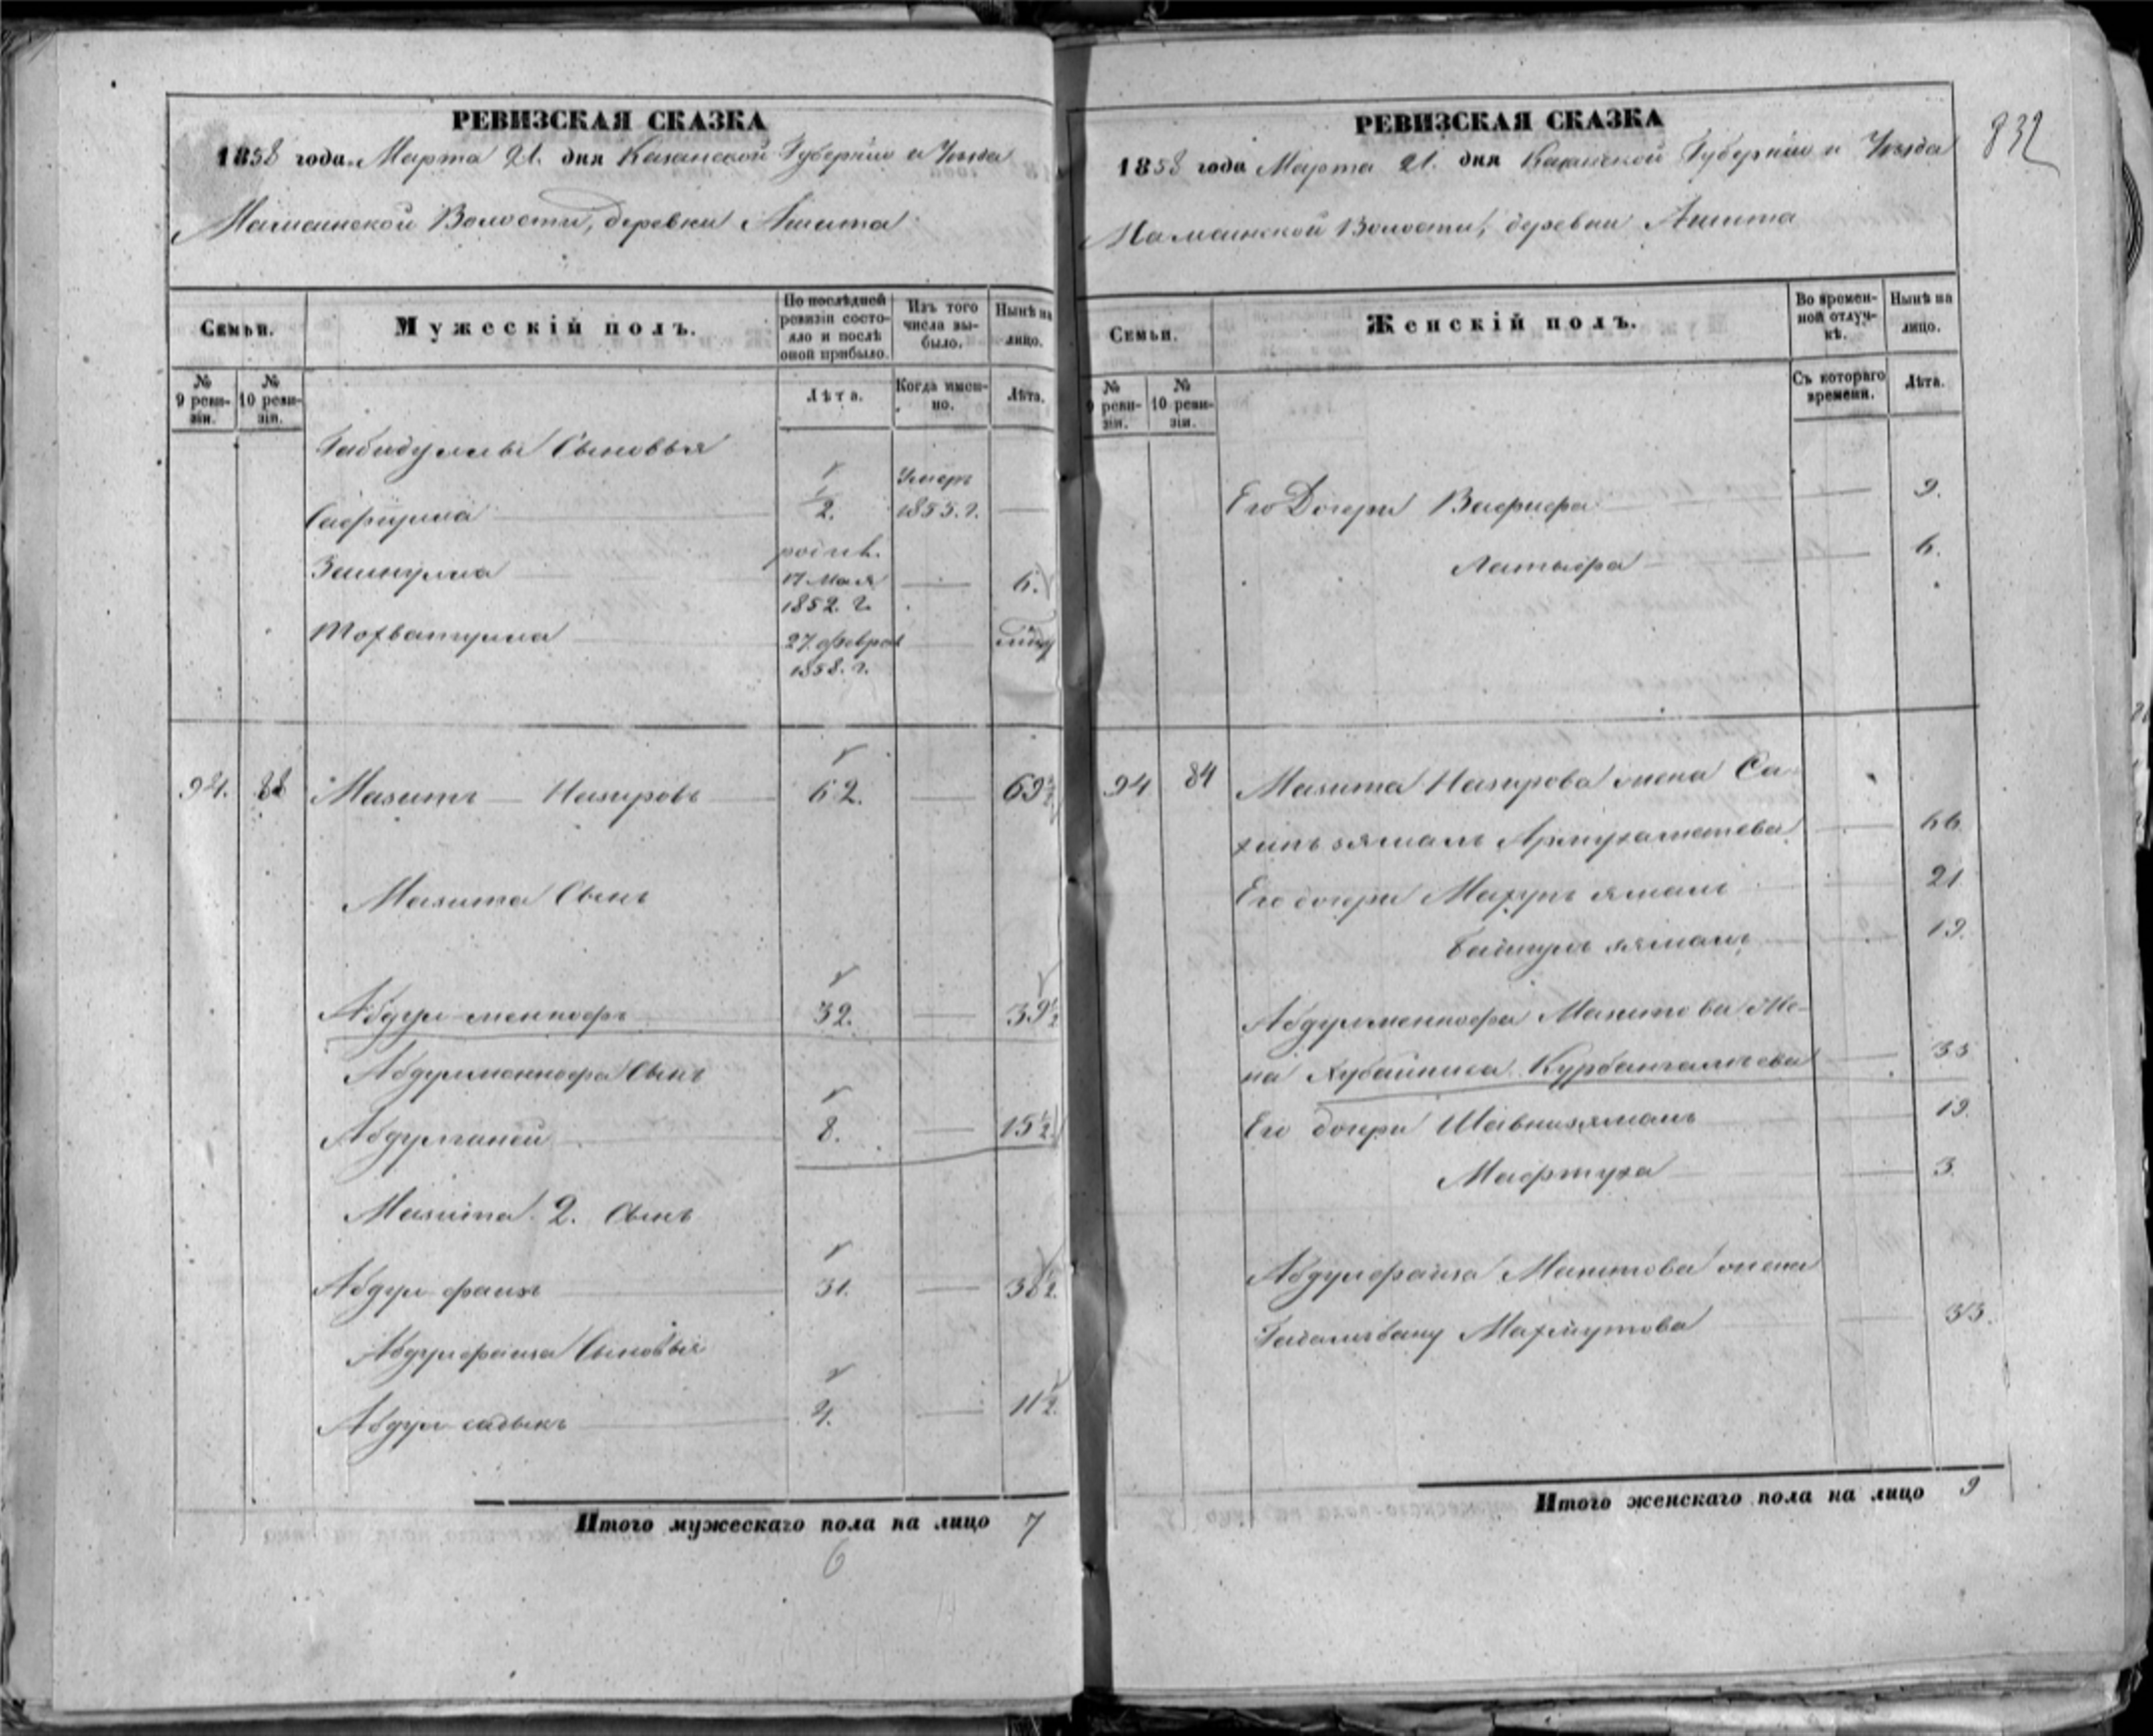 РЕВИЗСКАЯ СКАЗКА
1858 года Марта 21. дня Казанской Губернии и Уезда
Мамсинской Волости, деревни Ашита
Семьи.
Мужескій полъ.
По послѣдней ревизіи состояло и послѣ оной прибыло.
Изъ того числа выбыло.
Нынѣ на лицо.
№ 9 ревизіи.
№ 10 ревизіи.
Лѣта.
Когда именно.
Лѣта.
Габидуллы Сыновья
Сафиулла 1/2. Умеръ 1855. г.
Зайнулла 17 Мая 1852. г. 6.
Тохватулла 27 феврал 1858. г.
94. Мазитъ Назировъ 62. 69 1/2
Мазита Сынъ
Абдул-меннофъ 32. 39 1/2
Абдулменнофа Сынъ
Абдулганей 8. 15 1/2
Мазита 2. Сынъ
Абдул фаизъ 31. 38 1/2.
Абдулфаиза Сыновья
Абдул садыкъ 4. 11 1/2.
Итого мужескаго пола на лицо 7
6
832
РЕВИЗСКАЯ СКАЗКА
1858 года Марта 21. дня Казанской Губернии и Уезда
Мамсинской Волости, деревни Ашита
Семьи.
Женскій полъ.
Во временной отлучкѣ.
Нынѣ на лицо.
№ 9 ревизіи.
№ 10 ревизіи.
Съ котораго времени.
Лѣта.
Его Дочери Вафифа 9.
Латыфа 6.
94 84 Мазита Назирова жена Са-
хипъзямалъ Ярмухаметева 66.
Его дочери Махупъ ямалъ 21
зямалъ 19.
Абдулменнофа Мазитова Же-
на Хубайниса Курбангалиева 35
Его дочери Шавнизямалъ 19.
Мафтуха 3.
Абдулфаиза Мазитова жена
Махмутова 33.
Итого женскаго пола на лицо 9